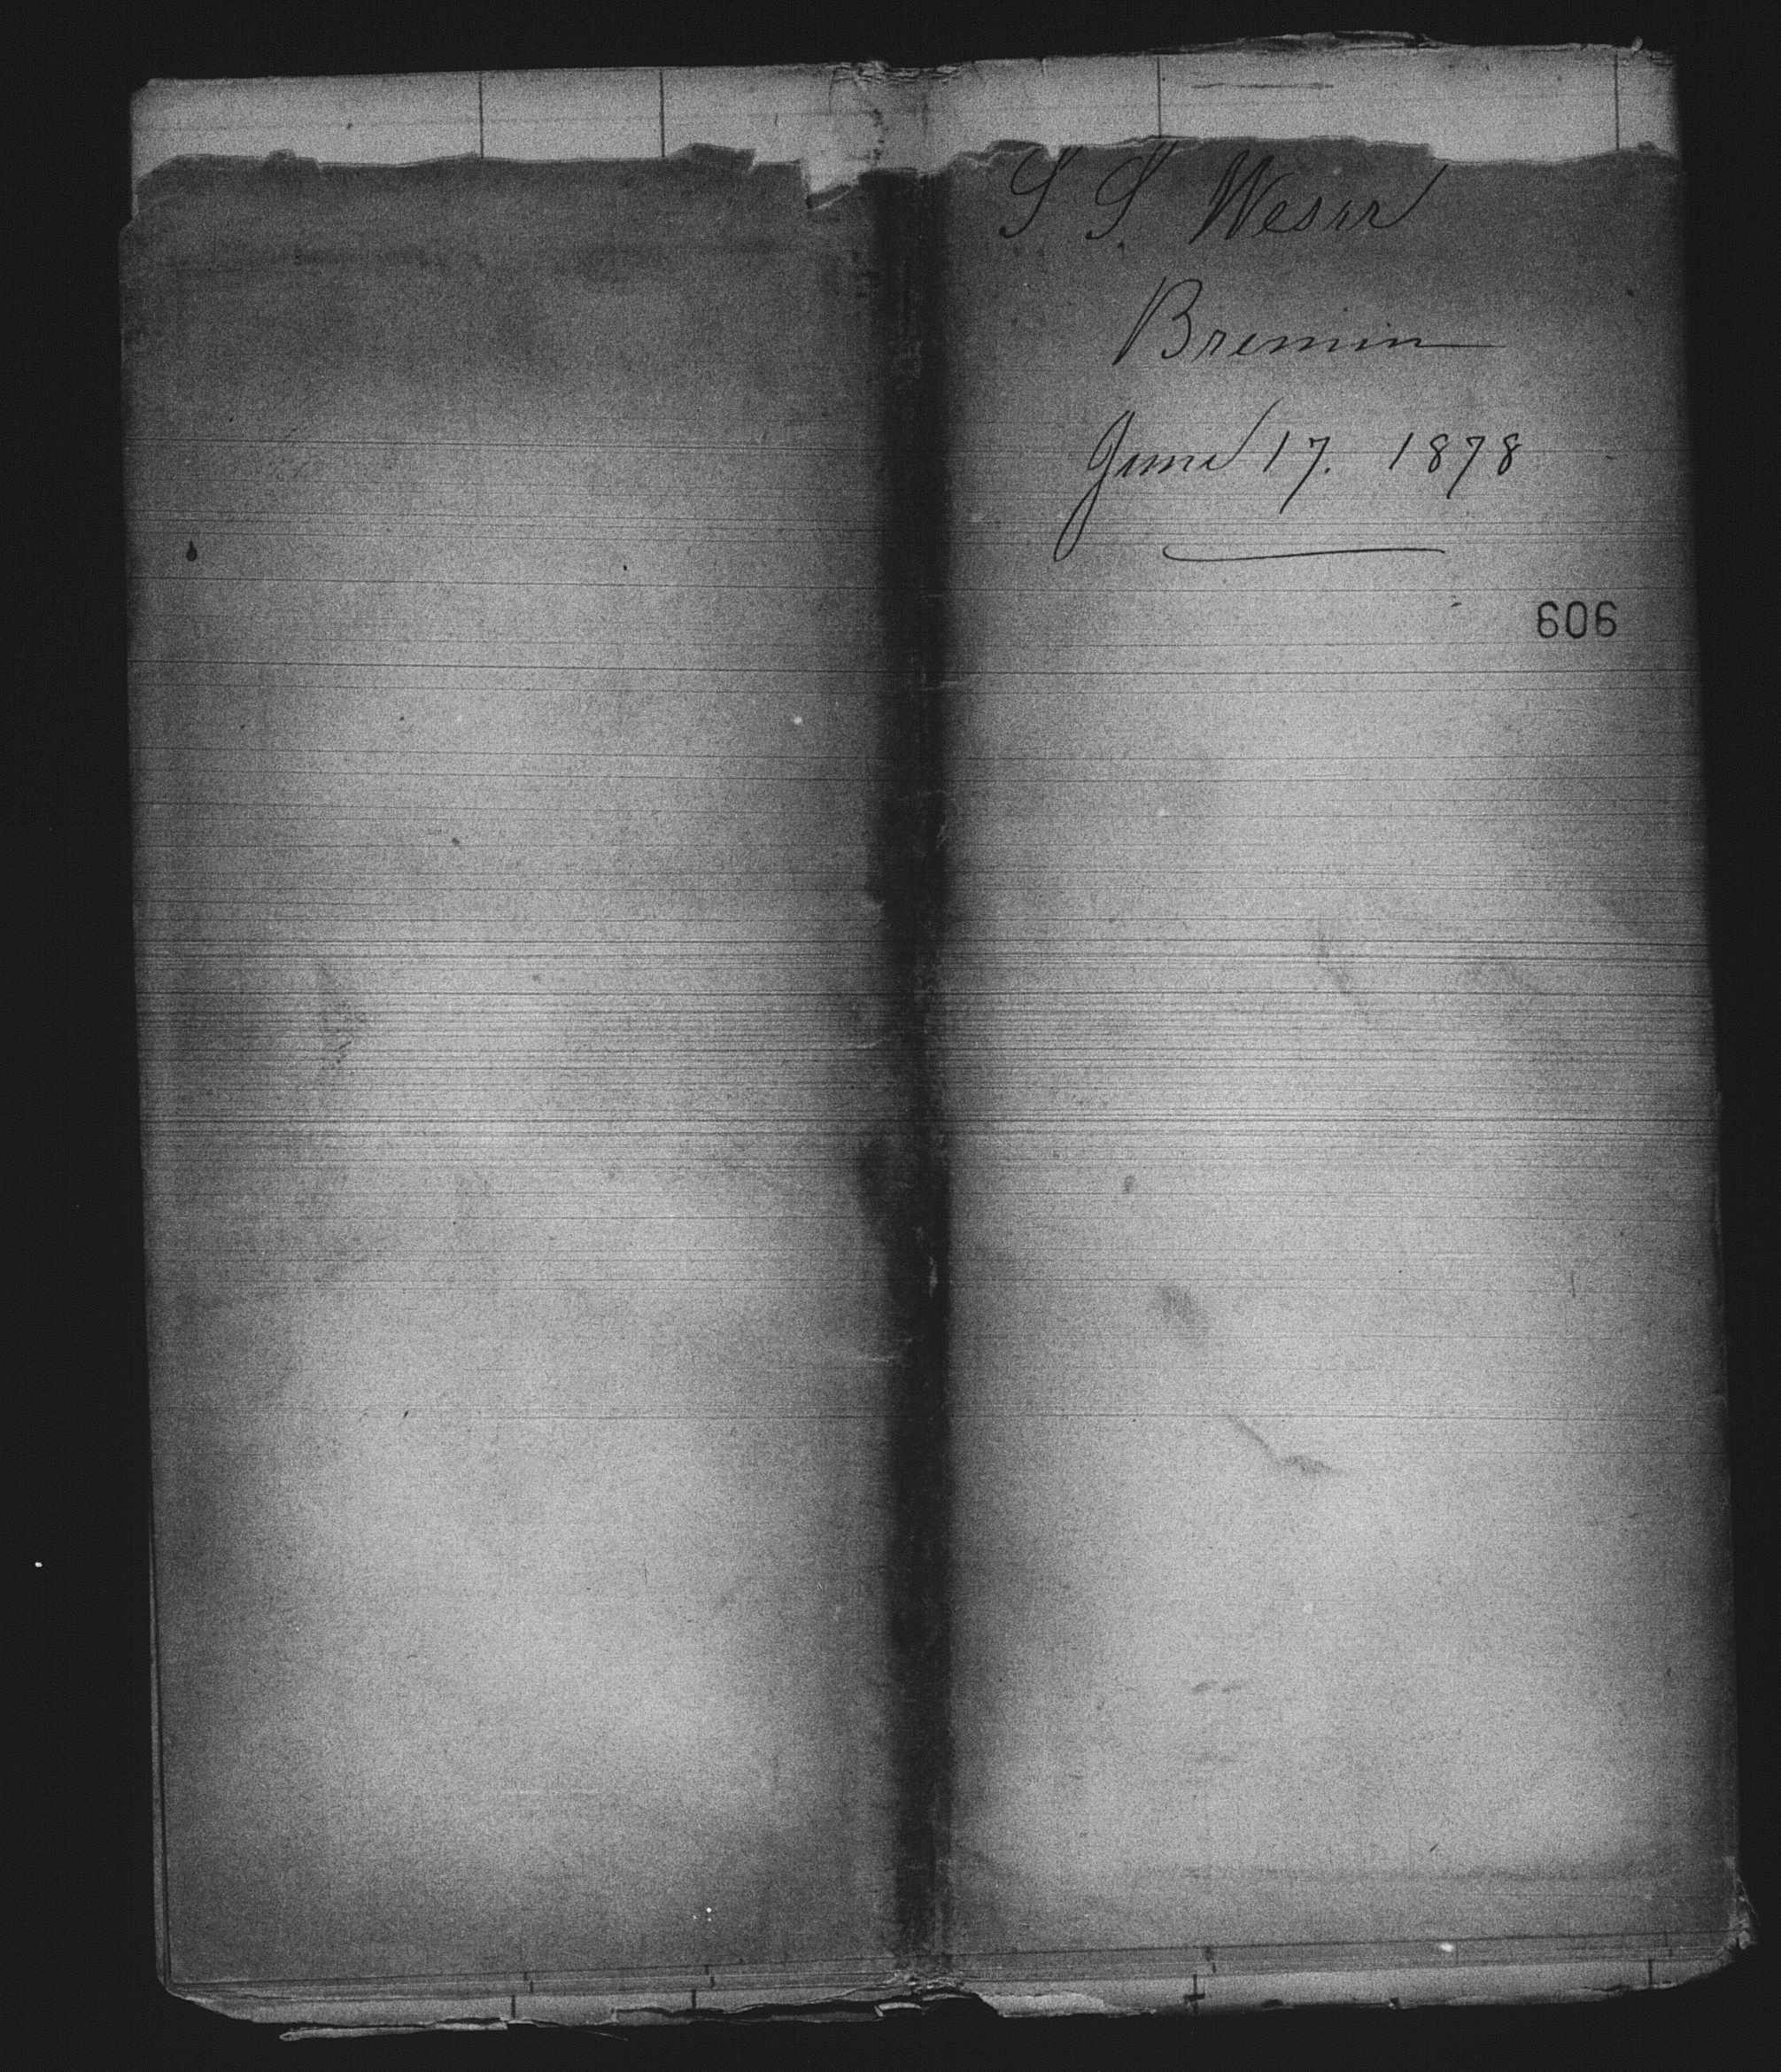 S S. Weser
Bremin
June 17. 1878
606